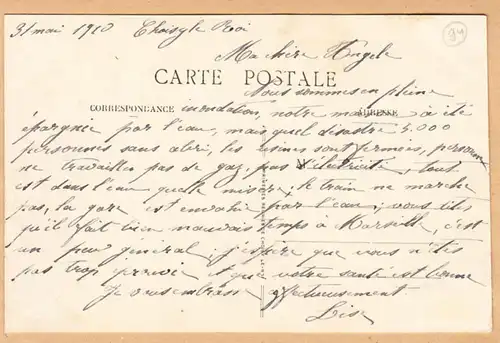 31 mai 1910 Choisy le Roi
94
Ma chère Angele
CARTE POSTALE
Nous sommes en pleine
CORRESPONDANCE
ADRESSE
inondation, notre maison a été
épargnée par l'eau, mais quel désastre 5.000
personnes sans abri, les usines sont fermées, personne
ne travaille, pas de gaz, pas d'électricité, tout
est dans l'eau quelle misère, le train ne marche
pas, la gare est envahie par l'eau; vous dites
qu'il fait bien mauvais temps à Marseille, c'est
un peu général. j'espère que vous n'êtes
pas trop et que votre santé est bonne
Je vous embrasse affectueusement
Lise